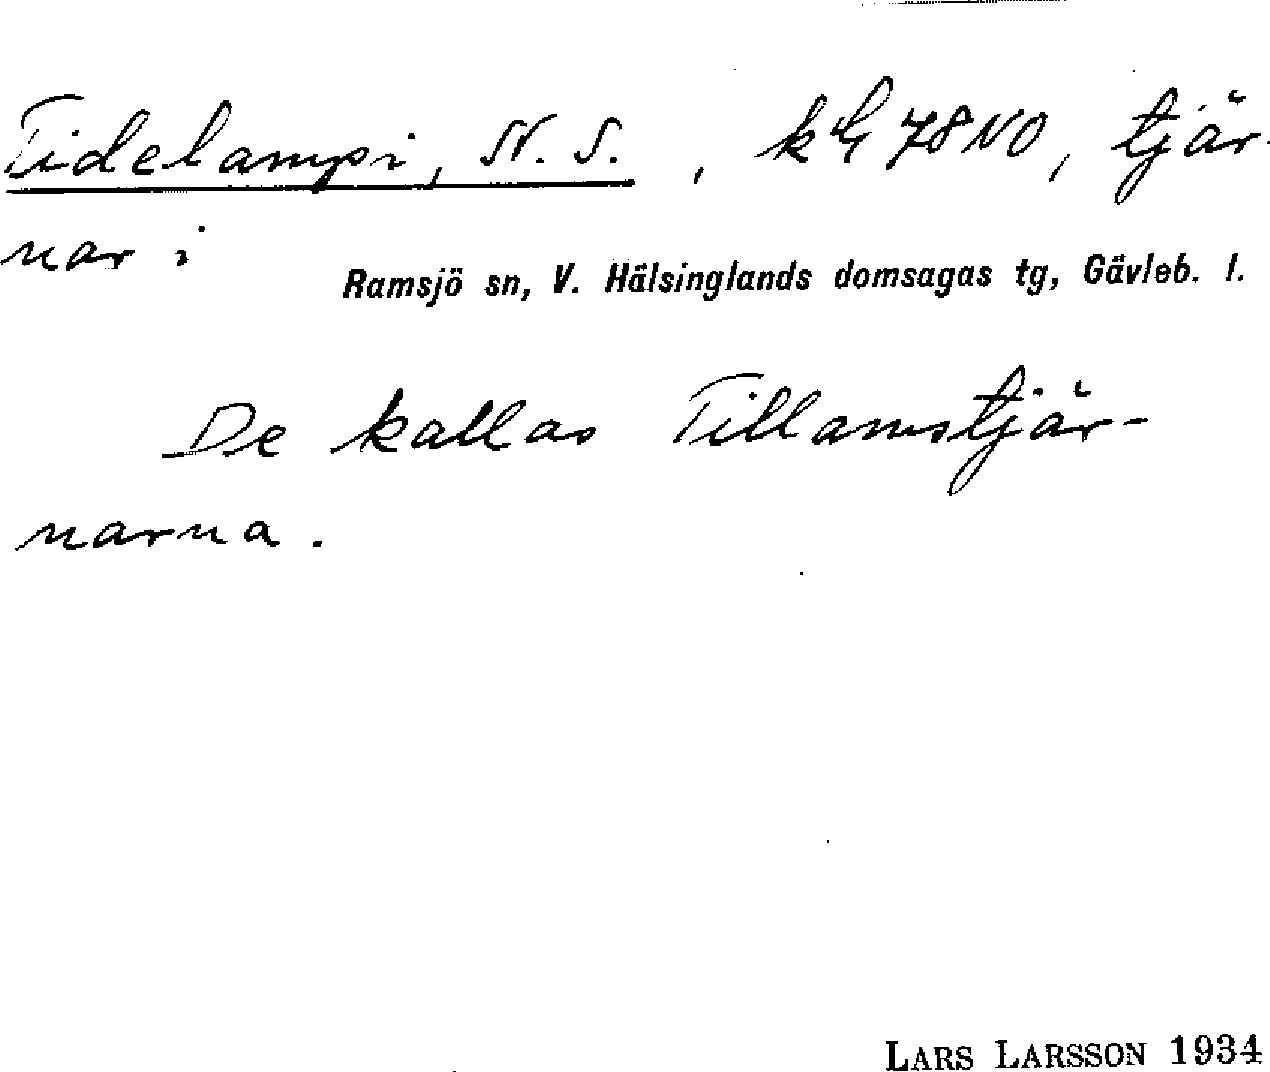 Tidelampi, N. S. , kG 78 NO, tjär-
nar i
Ramsjö sn, V. Hälsinglands domsagas tg, Gävleb. l.
De kallas Tillamstjär-
narna.
LARS LARSSON 1934